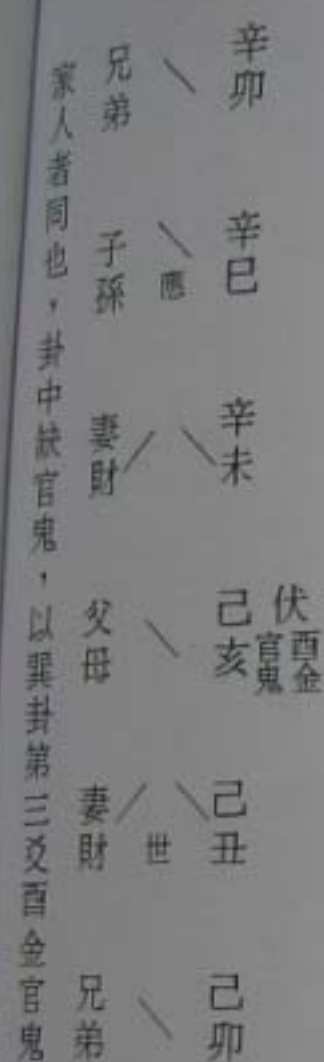 伏 酉金官鬼
辛卯 辛巳 辛未 己亥 己丑 己卯
應 世
兄弟 子孫 妻財 父母 妻財 兄弟
家人者同也,卦中缺官鬼,以巽卦第三爻酉金官鬼